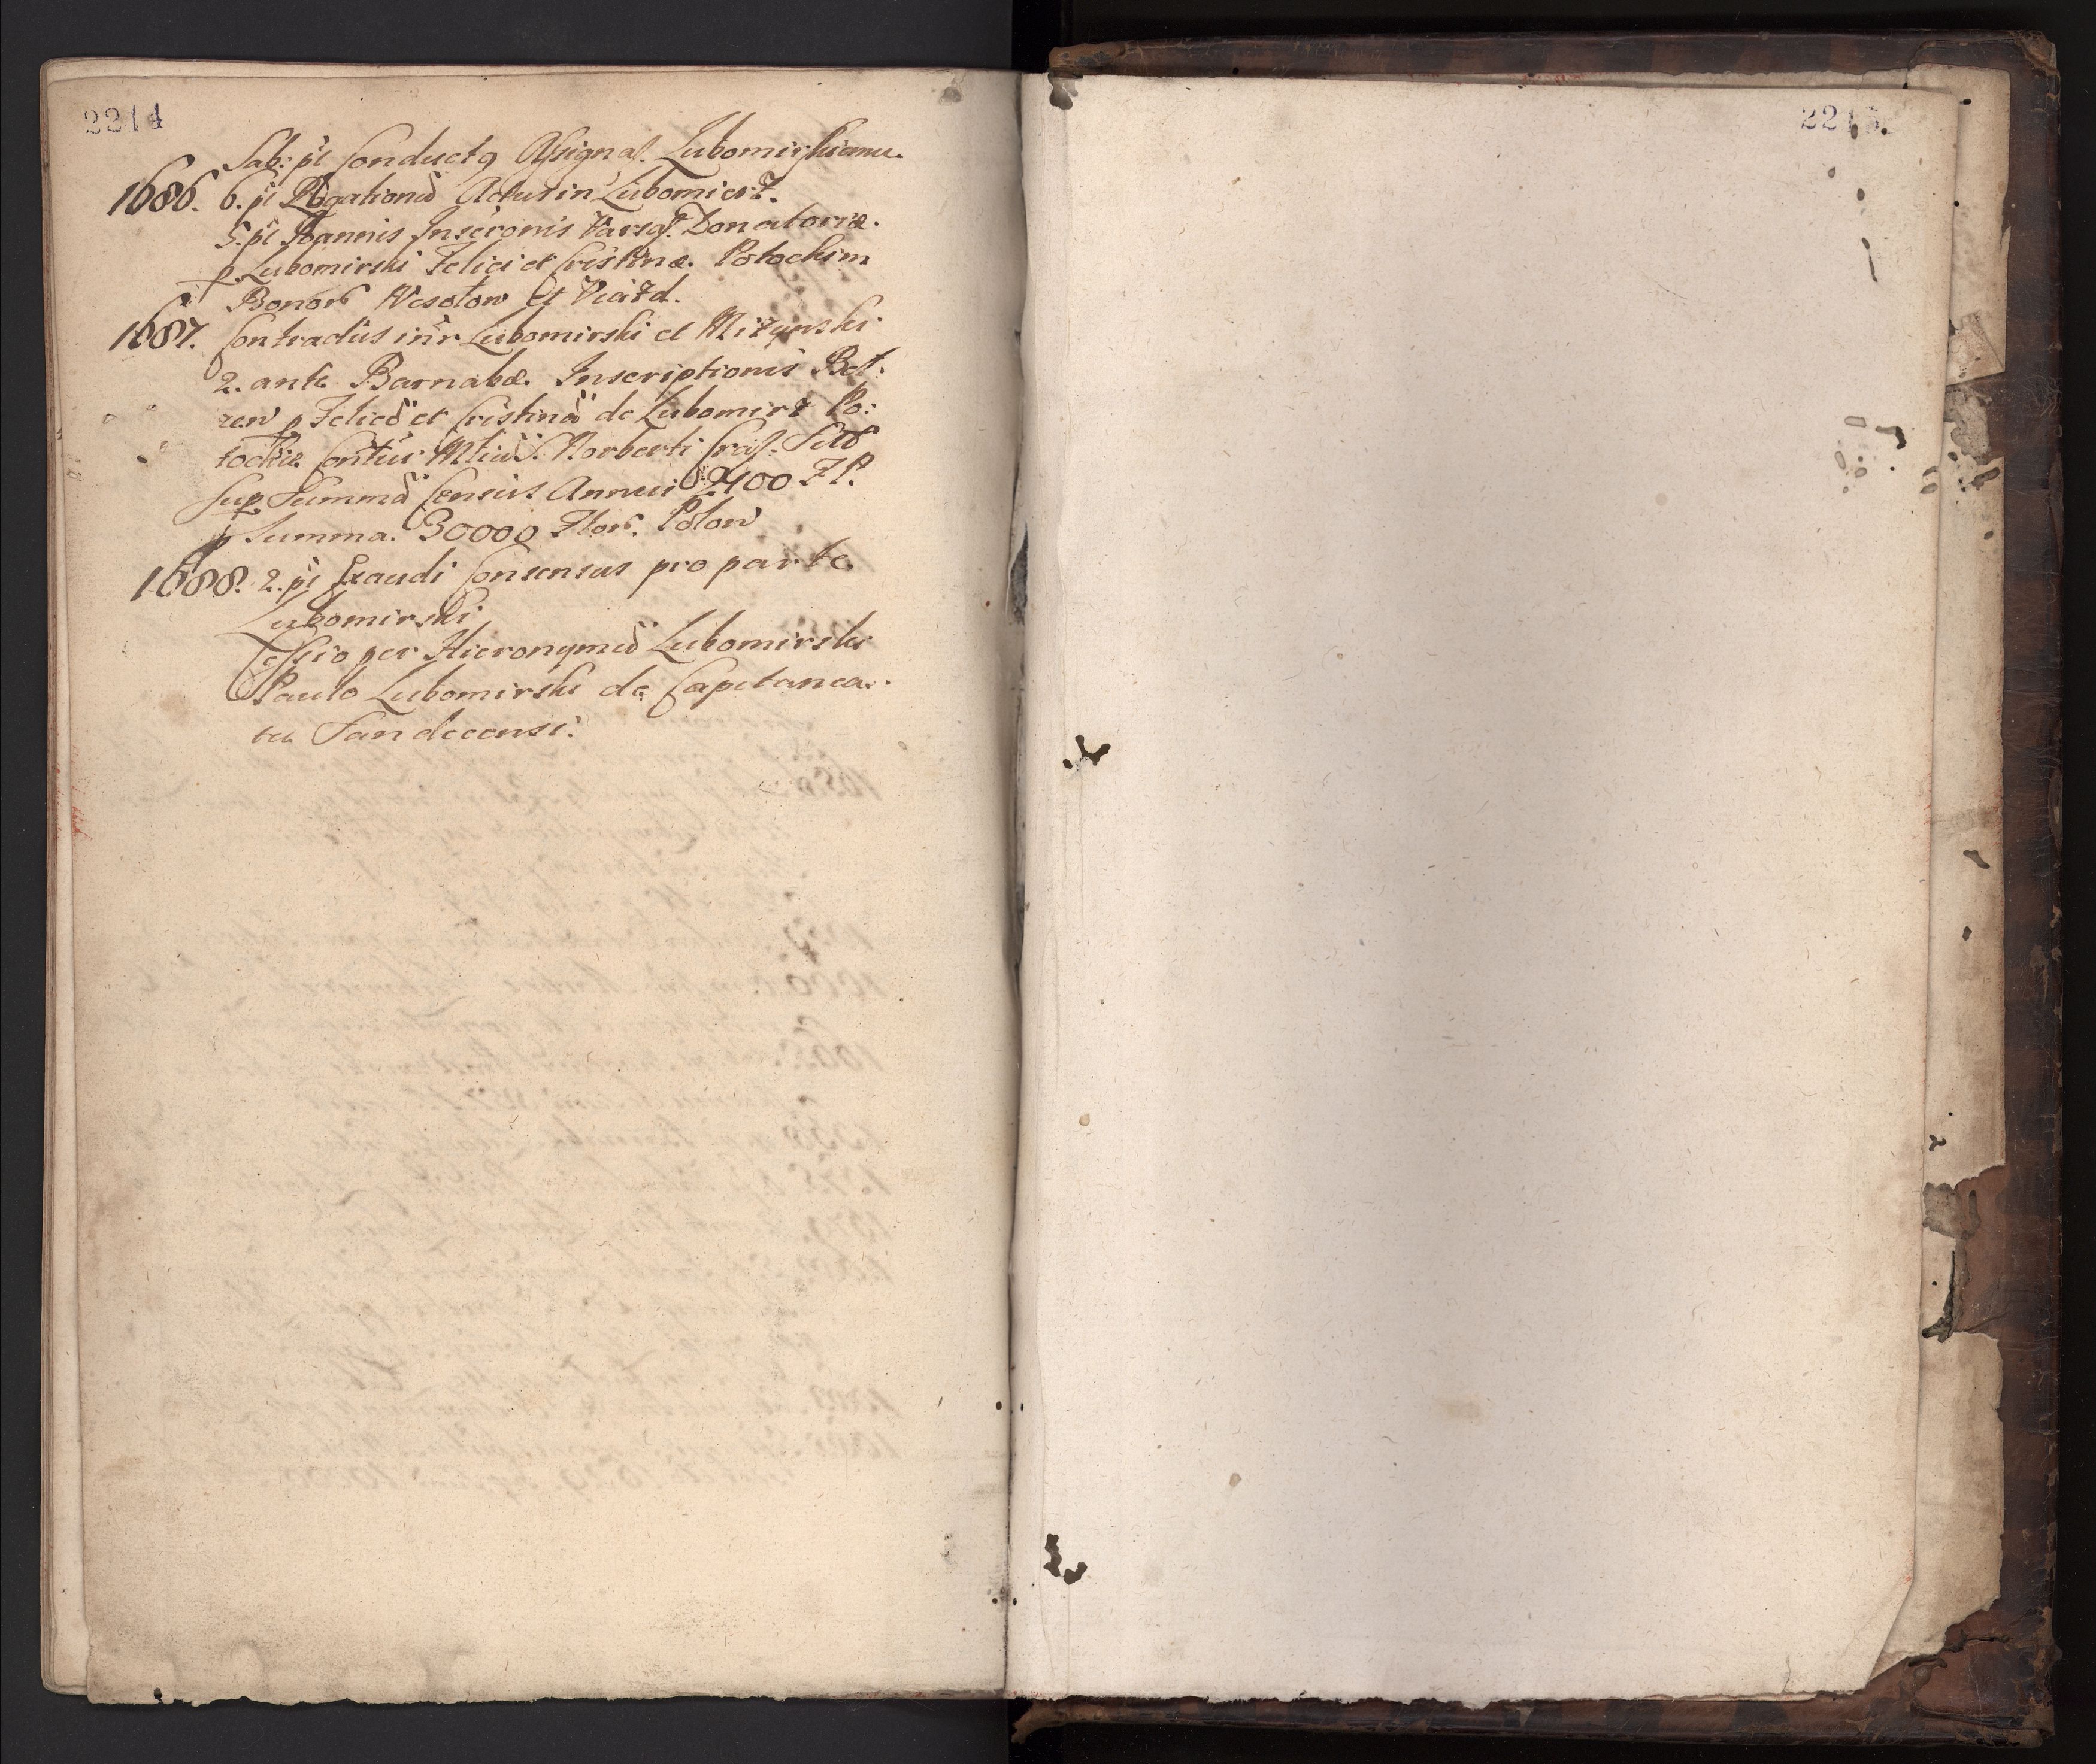 2214
Sab: pt Conductq Assignať. Lubomirscianu.
1686. 6. pt Rogationū Actus in Lubomierz.
5. pt Joannis Inscronis Varsaŕ. Donatoriæ.
p Lubomirski Felici et Cristinæ. Potockim
Bonorū Wesolow et Viazd.
1687. Contractus inr Lubomirski et Mizynski
2. ante Barnabæ. Inscriptionis Bel:
zen p Felicē et Cristinā de Lubomirz Po:
tockie Contus Norberti
Sup Summā Census Annui 2400 Fl.
p Summa. 30000 Flor. Polon
1688. 2. pt Exaudi Consensus pro parte
Lubomirski
Cessio per Hieronymū Lubomirski
Paulo Lubomirski de Capitanea:
tu Sandecensi.
2215